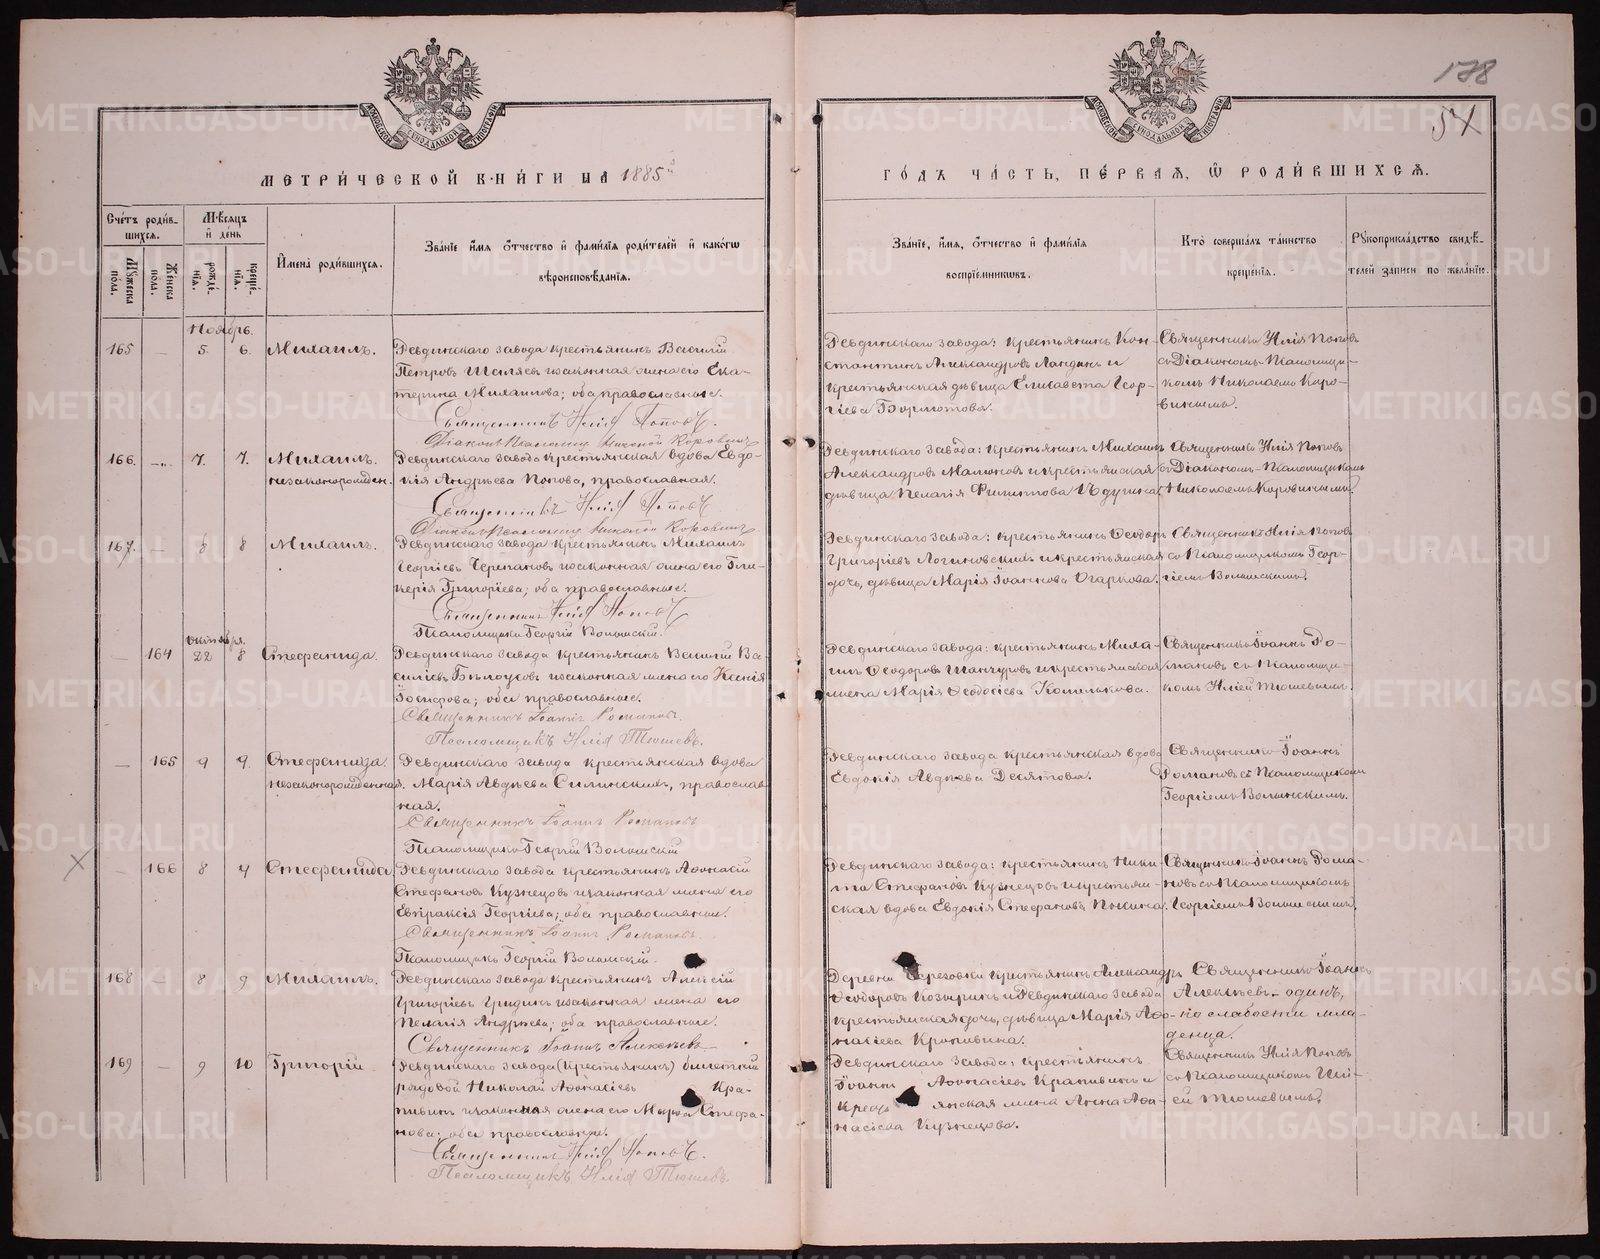 138
54
МЕТРИ́ЧЕСКОЙ КНИ́ГИ НА 1885й
ГО́ДЪ ЧА́СТЬ, ПЕ́РВАѦ, Ѿ РОДИ́ВШИХСѦ.
Сче́тъ роди́в-
шихсѧ.
Мѣ́сѧцъ
и́ де́нь
Имена̀ роди́вшихсѧ.
Зва́нїе и́мѧ ѻ́тчество и҆ фами́лїѧ роди́телей и҆ како́гѡ
вѣроисповѣ́данїѧ.
Зва́нїе, и́мѧ, ѻ́тчество и҆ фами́лїѧ
воспрїе́мниковъ.
Кто̀ соверша́лъ та́инство
креще́нїѧ.
Рꙋкоприкла́дство свидѣ́-
телей за́писи по жела́нїю.
Мꙋ́жеска
пола.
Же́нска
пола.
рожде́-
нїѧ.
креще́-
нїѧ.
Ноябрь.
165 — 5. 6. Михаилъ.
Ревдинскаго завода крестьянинъ Василій
Петровъ Шиляевъ и законная жена его Ека-
терина Михаилова; оба православные.
Священникъ Илія Поповъ.
Діаконъ Псаломщ. Николай Коровинъ
Ревдинскаго завода: крестьянинъ Кон-
стантинъ Александровъ Ландинъ и
крестьянская дѣвица Елисавета Геор-
гіева Бормотова.
Священникъ Илія Поповъ
съ Діакономъ-Псаломщи-
комъ Николаемъ Коро-
винымъ.
166. —„— 7. 7. Михаилъ.
незаконорожден.
Ревдинскаго завода крестьянская вдова Евдо-
кія Андреева Попова, православная.
Священникъ Илія Поповъ
Діаконъ Псаломщ. Николай Коровинъ
Ревдинскаго завода: крестьянинъ Михаилъ
Александровъ Мамоновъ и крестьянская
дѣвица Пелагія Филипова
Священникъ Илія Поповъ
съ Діакономъ-Псаломщикомъ
Николаемъ Коровинымъ.
167. — 8 8 Михаилъ.
Ревдинскаго завода крестьянинъ Михаилъ
Георгіевъ Черепановъ и законная жена его Гли-
керія Григоріева; оба православные.
Священникъ Илія Поповъ
Псаломщикъ Георгій Волынскій.
Ревдинскаго завода: крестьянинъ Ѳеодоръ
Григоріевъ Логиновскихъ и крестьянская
дочь, дѣвица Марія Іоаннова Огаркова.
Священникъ Илія Поповъ
со Псаломщикомъ Геор-
гіемъ Волынскимъ.
Октября.
— 164 22 8 Стефанида.
Ревдинскаго завода крестьянинъ Василій Ва-
силіевъ Бѣлоусовъ и законная жена его Ксенія
Іосифова; оба православные.
Священникъ Іоаннъ Романовъ.
Псаломщикъ Илія Тюшевъ.
Ревдинскаго завода: крестьянинъ Миха-
илъ Ѳеодоровъ Шанчуровъ и крестьянская
жена Марія Ѳеодосіева Комелькова.
Священникъ Іоаннъ Ро-
мановъ съ Псаломщи-
комъ Иліей Тюшевымъ.
— 165 9 9. Стефанида
незаконорожденная.
Ревдинскаго завода крестьянская вдова
Марія Авдѣева Силинскихъ, православ-
ная.
Священникъ Іоаннъ Романовъ
Псаломщикъ Георгій Волынскій
Ревдинскаго завода крестьянская вдова
Евдокія Авдѣева Десятова.
Священникъ Іоаннъ
Романовъ съ Псаломщикомъ
Георгіемъ Волынскимъ.
— 166 8 9 Стефанида
Ревдинскаго завода крестьянинъ Аѳонасій
Стефановъ Кузнецовъ и законная жена его
Евпраксія Георгіева; оба православные.
Священникъ Іоаннъ Романовъ.
Псаломщикъ Георгій Волынскій.
Ревдинскаго завода: крестьянинъ Ники-
та Стефановъ Кузнецовъ и крестьян-
ская вдова Евдокія Стефанова
Священникъ Іоаннъ Рома-
новъ со Псаломщикомъ
Георгіемъ Волынскимъ.
168 — 8 9 Михаилъ.
Ревдинскаго завода крестьянинъ Алексій
Григоріевъ Гридинъ и законная жена его
Пелагія Андреева; оба православные.
Священникъ Іоаннъ Алексѣевъ
Деревни Береговки крестьянинъ Александръ
Ѳеодоровъ Козыринъ и Ревдинскаго завода
крестьянская дочь, дѣвица Марія Аѳо-
насіева Крапивина.
Священникъ Іоаннъ
Алексѣевъ — одинъ,
по слабости мла-
денца.
169 — 9 10 Григорій
Ревдинскаго завода (крестьянинъ) билетный
рядовой Николай Аѳонасіевъ Кра-
пивинъ и законная жена его Марѳа Стефа-
нова; оба православные.
Священникъ Илія Поповъ.
Псаломщикъ Илія Тюшевъ
Ревдинскаго завода: крестьянинъ
Іоаннъ Аѳонасіевъ Крапивинъ и
крестьянская жена Анна Аѳа-
насіева Кузнецова.
Священникъ Илія Поповъ
со Псаломщикомъ Илі-
ей Тюшевымъ.